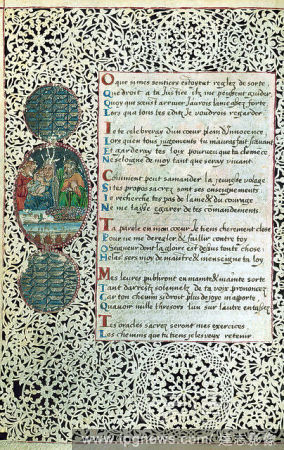 O que si mes sentiers estoyent reglez de sorte
Que droit a ta Justice ilz me peussent guider
Quoy que soust arriver j'aurois l'ame assez forte
Lors qu'à tous tes edit je voudrois regarder
Je te celebreray d'un coeur plein d'innocence
Lors qu'en tous jugements tu m'auras fait sçavant
garderay tes loix pourveu que ta clemence
N'esloigne de moy tant que seray vivant
Comment peut s'amander la jeunesse volage
Si tes propos sacrez sont ses enseignements
Je recherche tes pas de l'ame & du courage
Ne me laisse egarer de tes comandements
Ta parole en mon coeur je tiens cherement close
Pour ne me deregler & faillir contre toy
Seigneur dont la gloire est dessus toute chose
Helas vers moy de maistre & m'enseigne ta loy
Mes levres publiront en mainte & mainte sorte
Tant d'arrests solennelz de ta voix prononcez
Car ton chemin si droit plus de joye m'aporte
Qu'avoir mille thresors l'un sur l'autre entassez
Tes oracles sacrez seront mes exercices
Les chemins que tu tiens je les veux retenir
www.ipgnews.com